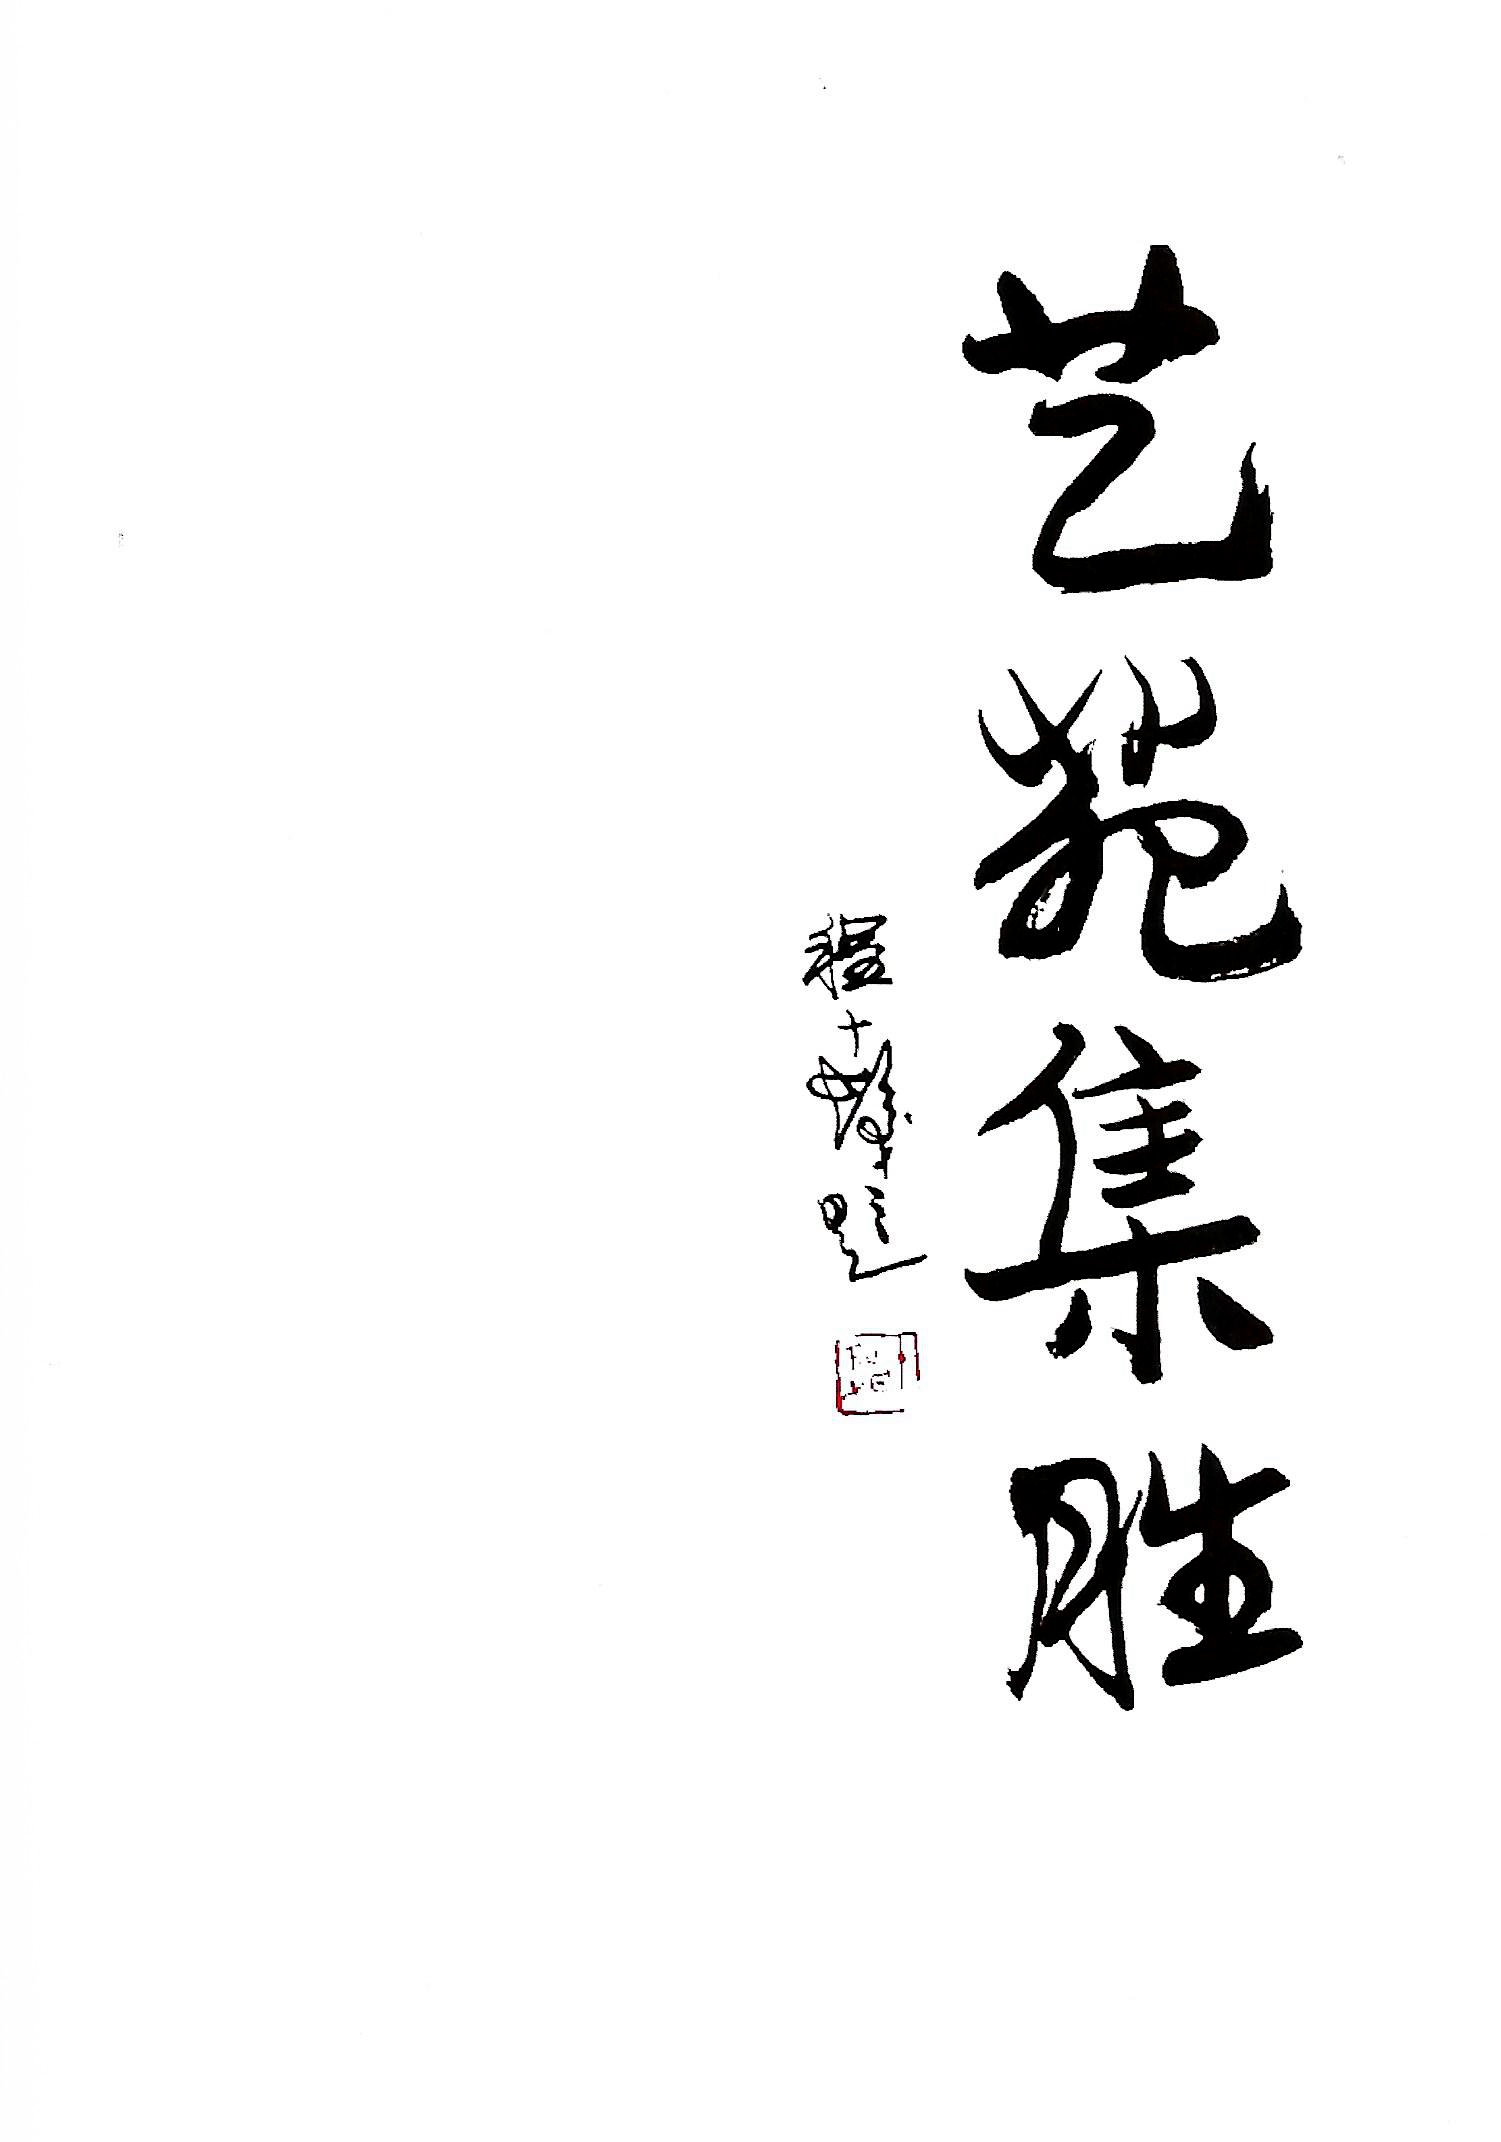 艺苑集胜
程十发题